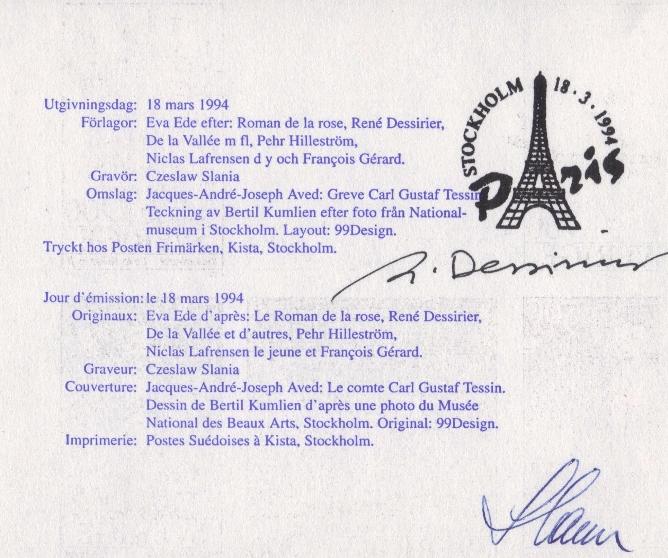 STOCKHOLM 18·3·1994
Paris
Utgivningsdag: 18 mars 1994
Förlagor: Eva Ede efter: Roman de la rose, René Dessirier,
De la Vallée m fl, Pehr Hilleström,
Niclas Lafrensen d y och François Gérard.
Gravör: Czeslaw Slania
Omslag: Jacques-André-Joseph Aved: Greve Carl Gustaf Tessin
Teckning av Bertil Kumlien efter foto från National-
museum i Stockholm. Layout: 99Design.
Tryckt hos Posten Frimärken, Kista, Stockholm.
R. Dessirier
Jour d'émission: le 18 mars 1994
Originaux: Eva Ede d'après: Le Roman de la rose, René Dessirier,
De la Vallée et d'autres, Pehr Hilleström,
Niclas Lafrensen le jeune et François Gérard.
Graveur: Czeslaw Slania
Couverture: Jacques-André-Joseph Aved: Le comte Carl Gustaf Tessin.
Dessin de Bertil Kumlien d'après une photo du Musée
National des Beaux Arts, Stockholm. Original: 99Design.
Imprimerie: Postes Suédoises à Kista, Stockholm.
Slania